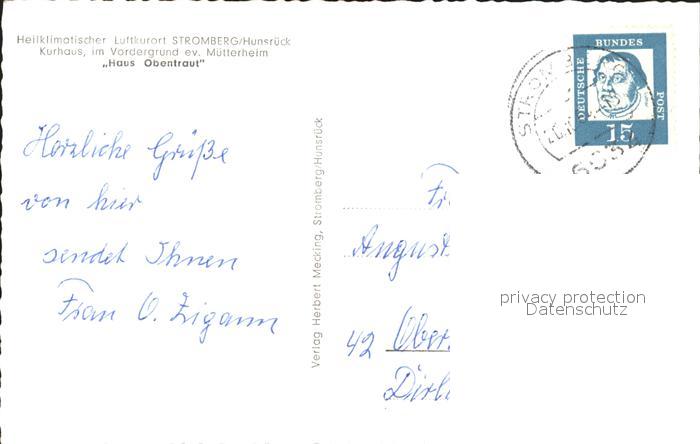 Heilklimatischer Luftkurort STROMBERG/Hunsrück
Kurhaus, im Vordergrund ev. Mütterheim
„Haus Obentraut"
Herzliche Grüße
von hier
sendet Ihnen
Frau O. Zigann
Verlag Herbert Mecking, Stromberg/Hunsrück
DEUTSCHE BUNDES POST
15
STROMB
6534
Fr
August
42 Ober
Dirl
privacy protection
Datenschutz